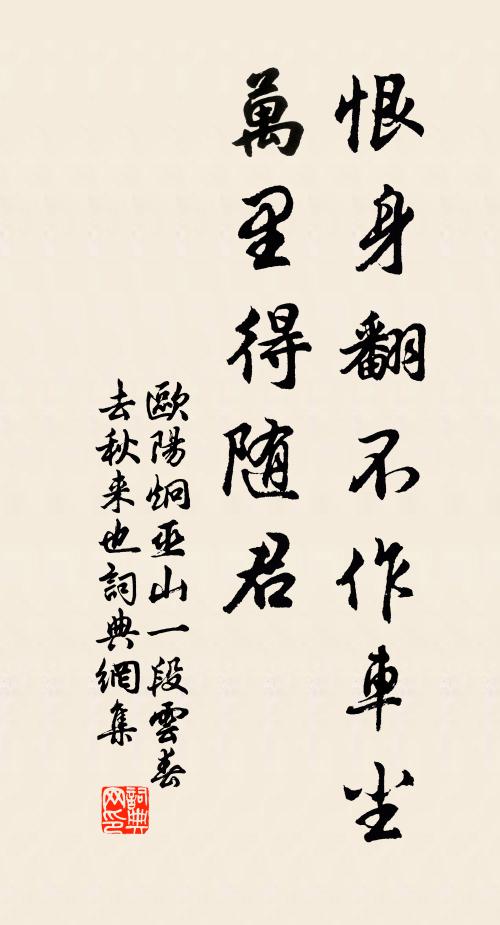 恨身翻不作車尘
萬里得随君
歐陽炯巫山一段雲春
去秋来也詞典網集
詞典网印